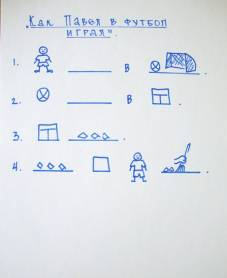 „Как Павел в футбол
играл".
1. в .
2. в .
3. .
4. .